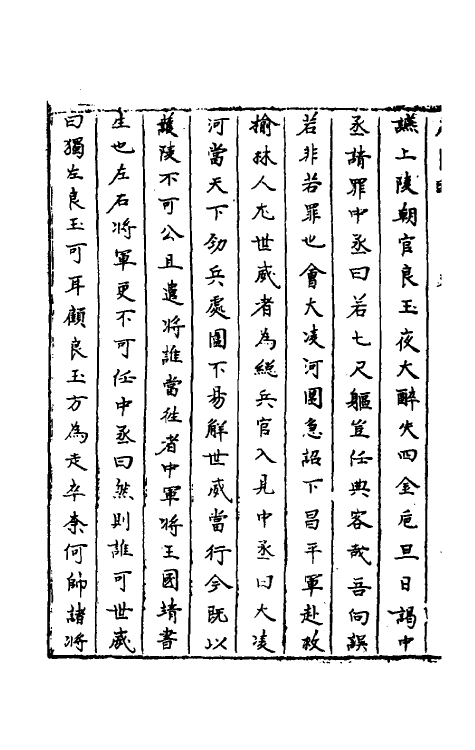 讌上陵朝官良玉夜大醉失四金巵旦日謁中
丞請罪中丞曰若七尺軀豈任典客哉吾向誤
若非若罪也會大凌河圍急詔下昌平軍赴救
榆林人尤世威者為總兵官入見中丞曰大凌
河當天下勁兵處圍不易解世威當行今既以
護陵不可公且遣將誰當往者中軍將王國靖書
生也左右將軍更不可任中丞曰然則誰可世威
曰獨左良玉可耳顧良玉方為走卒柰何帥諸將